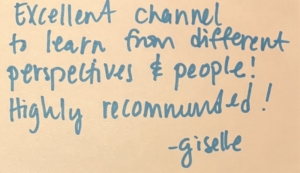 Excellent channel
to learn from different
perspectives & people!
Highly recommunded!
-giselle